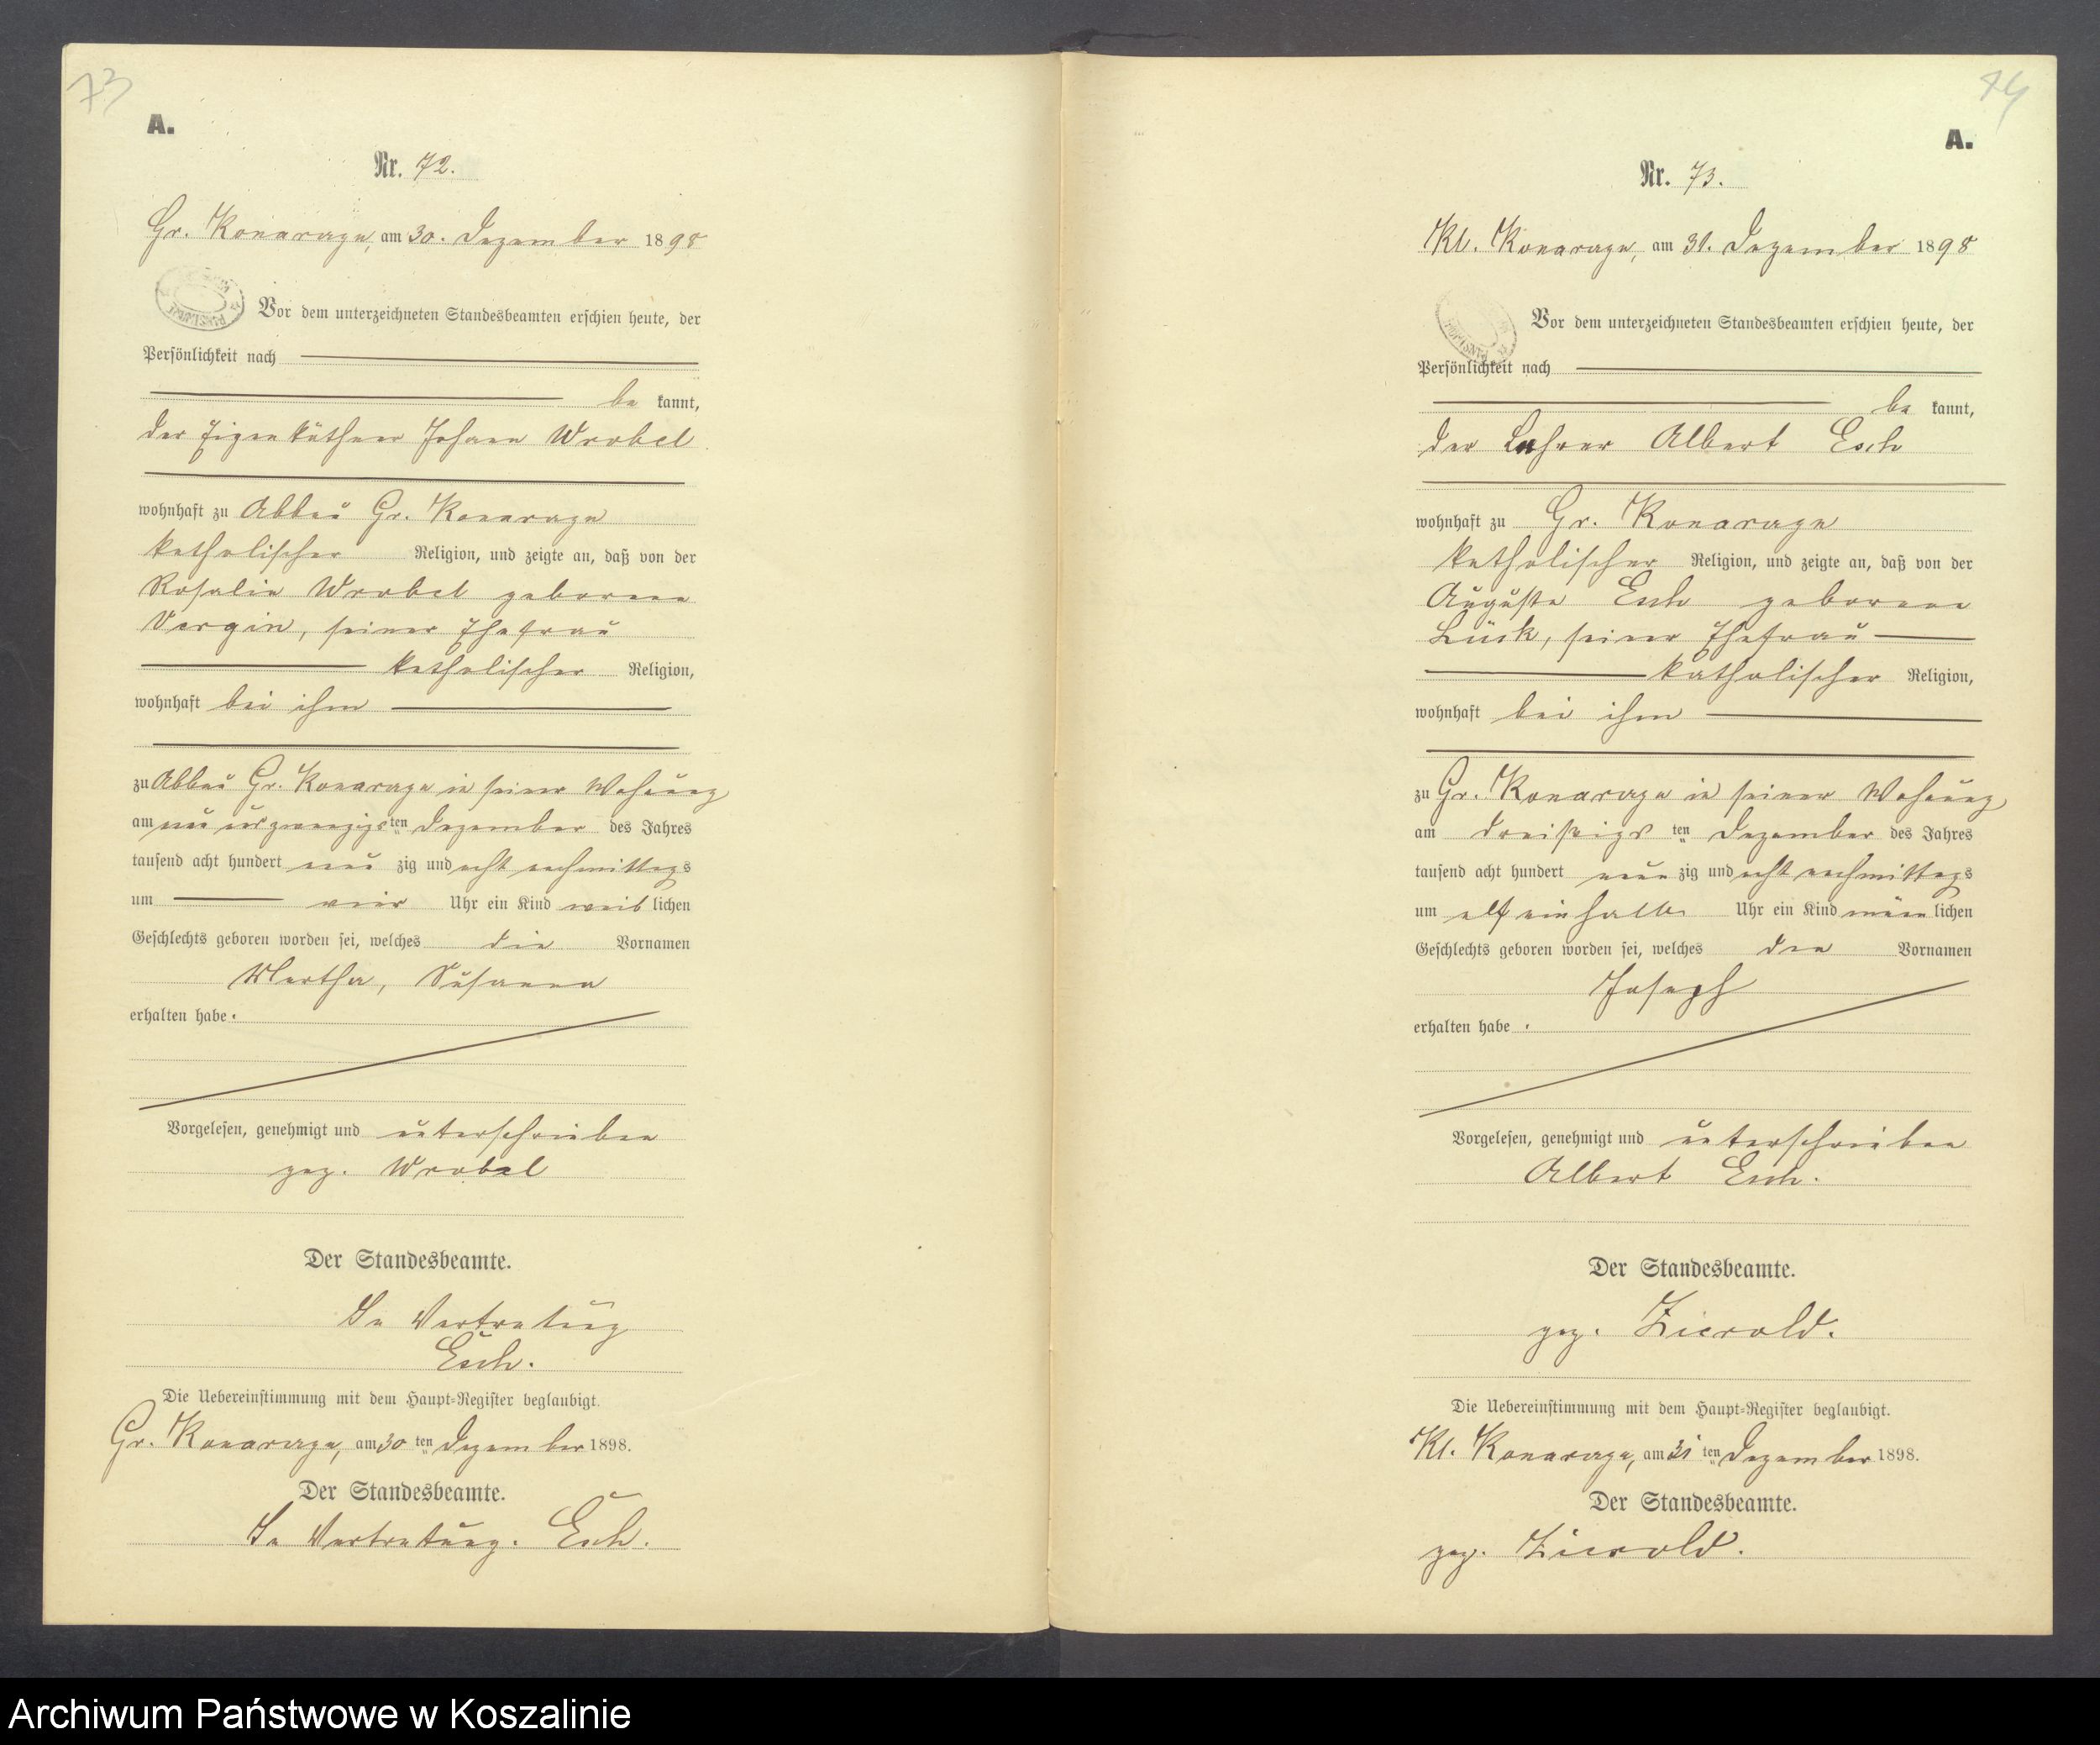 73
A.
Nr. 72.
Gr. Konarzyn, am 30. Dezember 1898
Vor dem unterzeichneten Standesbeamten erschien heute, der
Persönlichkeit nach
be kannt,
der Eigenkäthner Johann Wrobel
wohnhaft zu Abbau Gr. Konarzyn
katholischer Religion, und zeigte an, daß von der
Rosalie Wrobel geborene
Vergin, seiner Ehefrau
katholischer Religion,
wohnhaft bei ihm
zu Abbau Gr. Konarzyn in seiner Wohnung
am neunundzwanzigsten Dezember des Jahres
tausend acht hundert neun zig und acht nachmittags
um vier Uhr ein Kind weib lichen
Geschlechts geboren worden sei, welches die Vornamen
Martha, Susanna
erhalten habe.
Vorgelesen, genehmigt und unterschrieben
gez. Wrobel
Der Standesbeamte.
In Vertretung
Esch.
Die Uebereinstimmung mit dem Haupt=Register beglaubigt.
Gr. Konarzyn, am 30 ten Dezember 1898.
Der Standesbeamte.
In Vertretung. Esch.
74
A.
Nr. 73.
Kl. Konarzyn, am 31. Dezember 1898
Vor dem unterzeichneten Standesbeamten erschien heute, der
Persönlichkeit nach
be kannt,
der Lehrer Albert Esch
wohnhaft zu Gr. Konarzyn
katholischer Religion, und zeigte an, daß von der
Auguste Esch geborene
Lück, seiner Ehefrau
katholischer Religion,
wohnhaft bei ihm
zu Gr. Konarzyn in seiner Wohnung
am dreißigs ten Dezember des Jahres
tausend acht hundert neun zig und acht nachmittags
um elf einhalb Uhr ein Kind männ lichen
Geschlechts geboren worden sei, welches den Vornamen
Joseph
erhalten habe.
Vorgelesen, genehmigt und unterschrieben
Albert Esch.
Der Standesbeamte.
gez. Zierold.
Die Uebereinstimmung mit dem Haupt=Register beglaubigt.
Kl. Konarzyn, am 31 ten Dezember 1898.
Der Standesbeamte.
gez. Zierold.
Archiwum Państwowe w Koszalinie